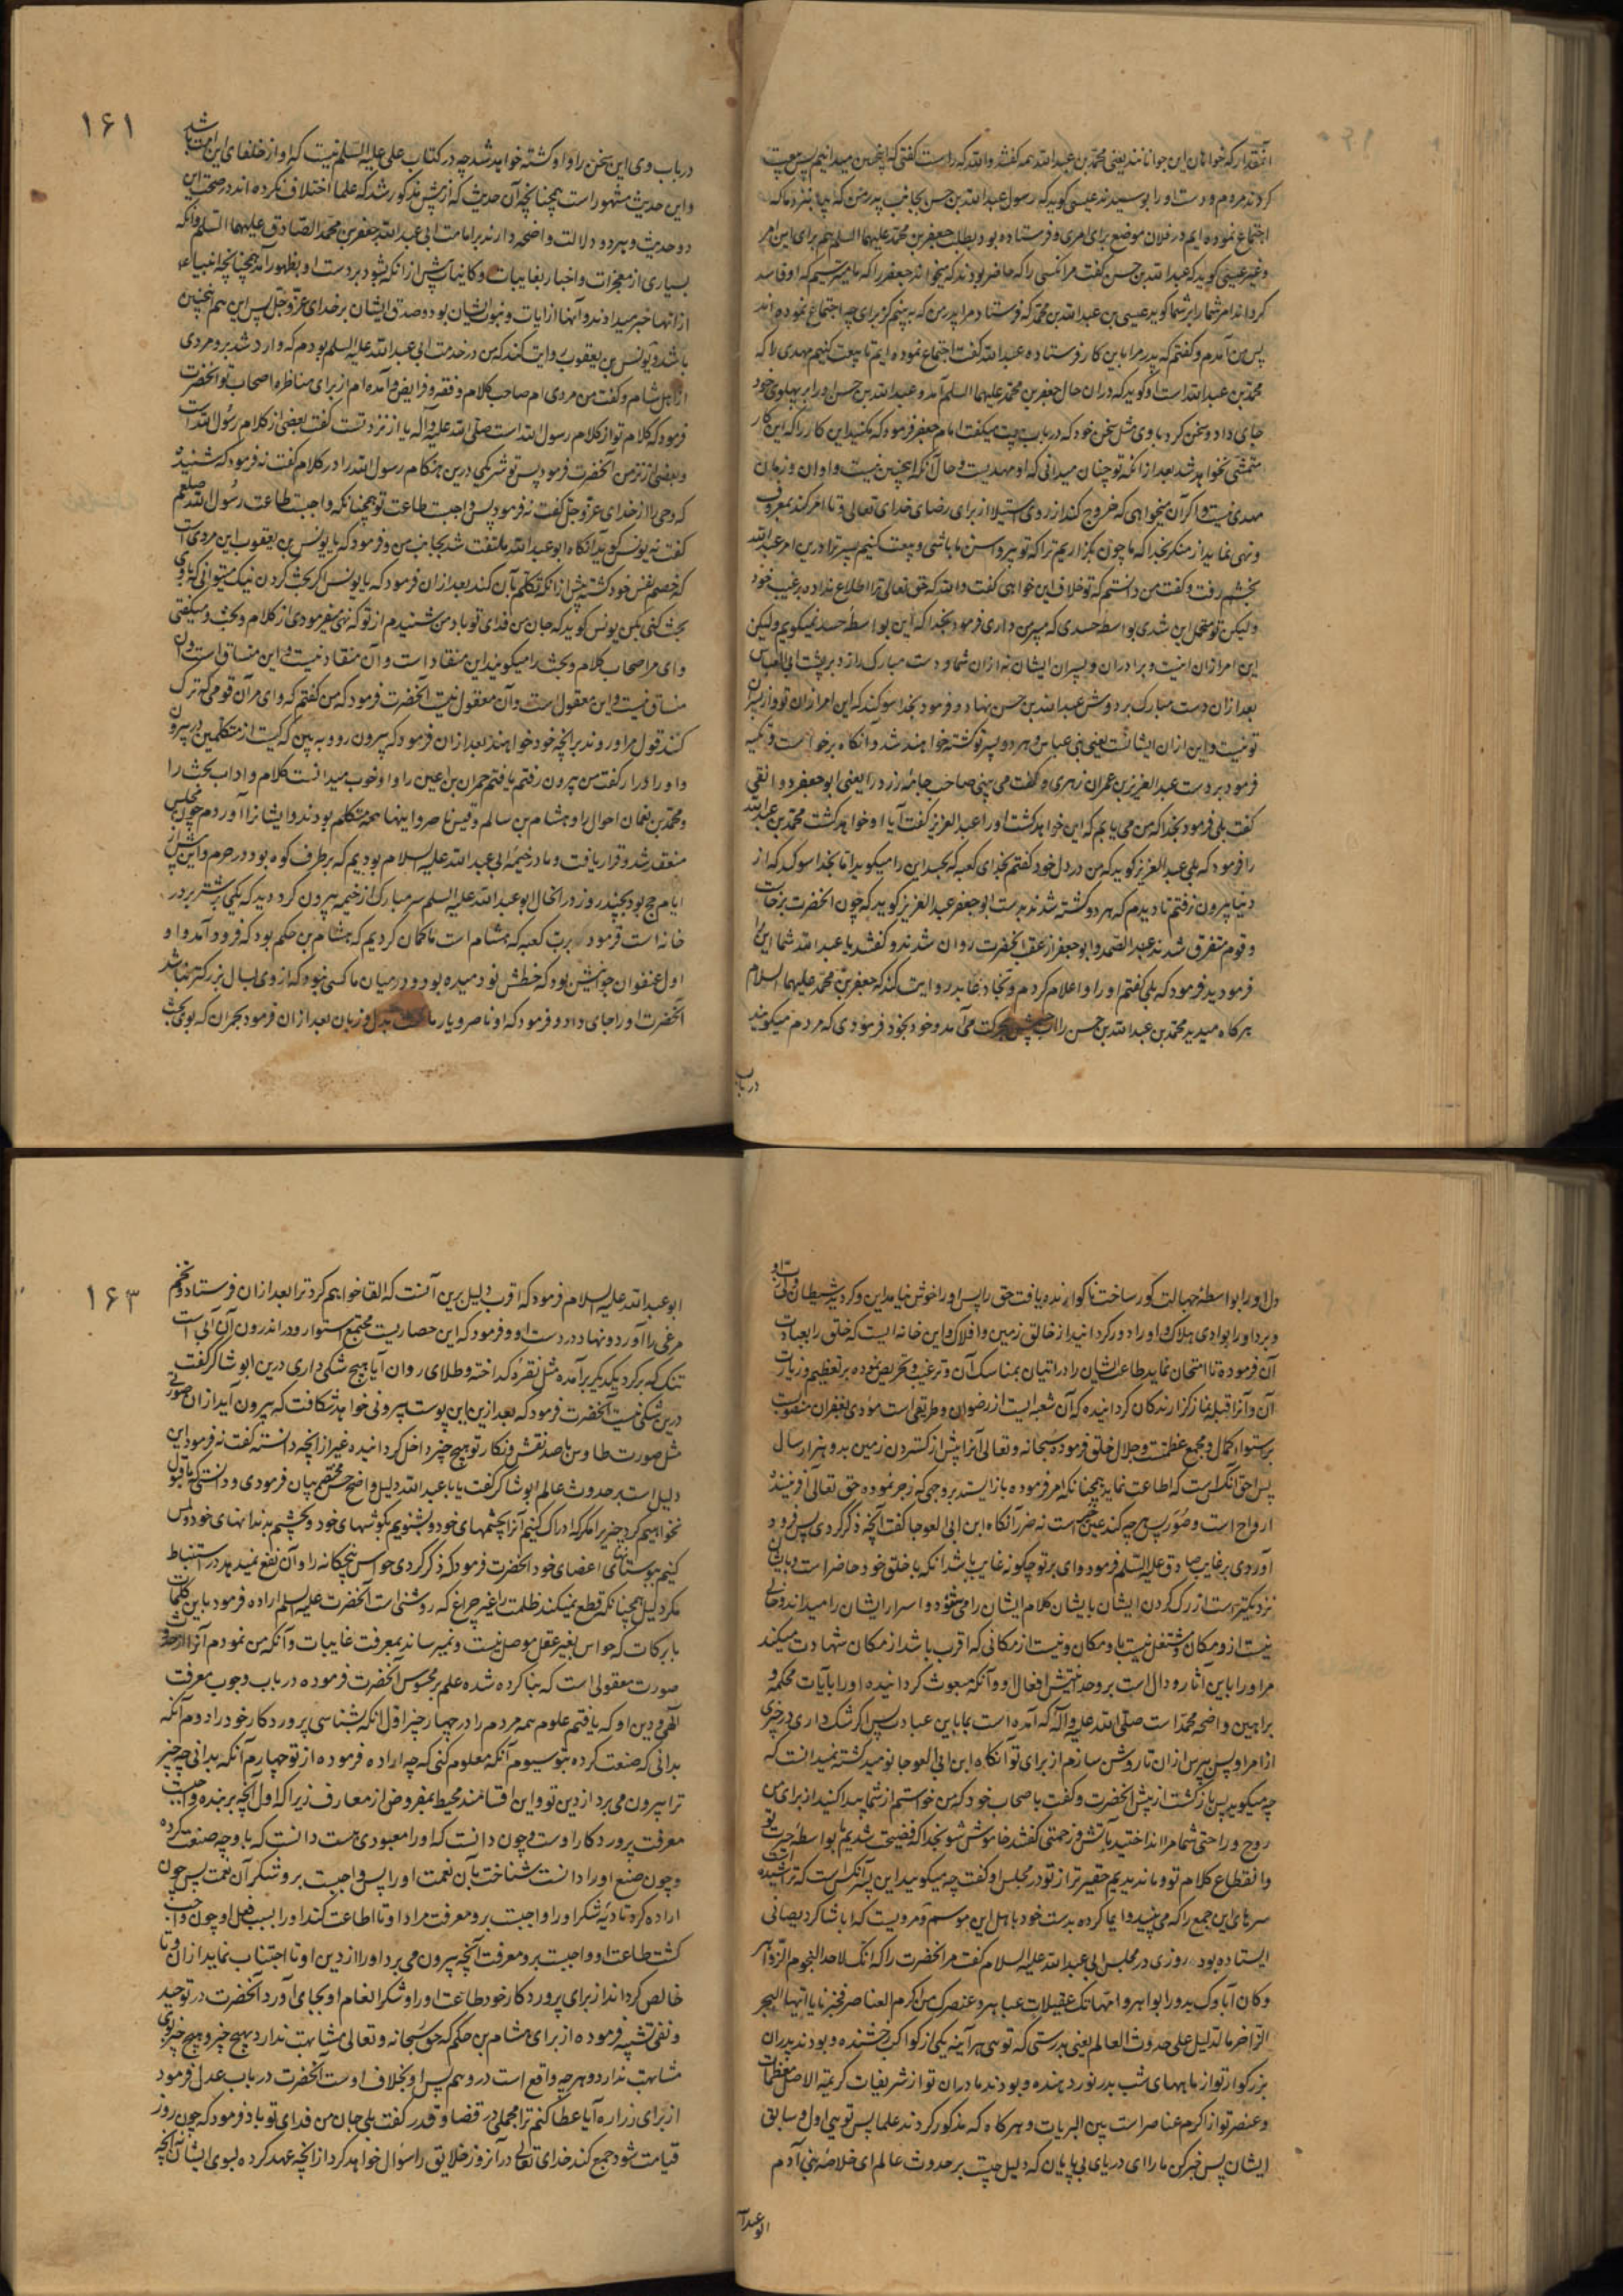 آنقدر که خواهان این جوانانند یعنی محمد بن عبدالله همه گفتند والله که راست گفتی که اینچنین میدانیم پس بیعت
کردند مردم و دست او را بوسیدند عیسی گوید که رسول عبدالله بن حسن بجانب پدر من که بیا بنزد ما که
اجتماع نموده ایم در فلان موضع برای امری و فرستاده بود بطلب جعفر بن محمد علیهما السلام هم برای این امر
و غیر عیسی گوید که عبدالله بن حسن گفت مر آنکسی را که حاضر بودند که نخوانید جعفر را که ما میترسیم که او فاسد
گرداند امر شما را بر شما گوید عیسی بن عبدالله بن محمد که فرستاد مرا پدر من که به بینم که برای چه اجتماع نموده اند
پس من آمدم و گفتم که پدر مرا باین کار فرستاده عبدالله گفت اجتماع نموده ایم تا بیعت کنیم مهدی را که
محمد بن عبدالله است او گوید که در آن حال جعفر بن محمد علیهما السلام آمد و عبدالله بن حسن او را بر پهلوی خود
جای داد و سخن کرد با وی مثل سخن خود که در باب بیعت میگفت امام جعفر فرمود که مکنید این کار را که این کار
متمشی نخواهد شد بعد از آنکه تو چنان میدانی که او مهدیست و حال آنکه اینچنین نیست و اوان و زمان
مهدی نیست و اگر آن میخواهی که خروج کند از روی استیلا از برای رضای خدای تعالی و تا امر کند بمعروف
و نهی نماید از منکر بخدا که ما چون بگذاریم ترا که تو پیر و اسن ما باشی و بیعت کنیم پسر ترا درین امر عبدالله
بخشم رفت و گفت من دانستم که تو خلاف این خواهی گفت والله که حق تعالی ترا اطلاع نداده بر غیب خود
ولیکن تو متحمل این شدی بواسطه حسدی که بپسر من داری فرمود بخدا که این بواسطه حسد نمیگویم ولیکن
این امر از آن اینست و برادران و پسران ایشان نه از آن شما و دست مبارک را زد بر پشت ابی العباس
بعد از آن دست مبارک بر دوش عبدالله بن حسن نهاد و فرمود بخدا سوگند که این امر از آن تو و از پسران
تو نیست و این از آن ایشانست یعنی بنی عباس و هر دو پسر تو کشته خواهند شد و آنگاه برخواست و تکیه
فرمود بر دست عبدالعزیز بن عمران زهری و گفت می بینی صاحب جامهٔ زرد را یعنی ابو جعفر دوانقی
گفت بلی فرمود بخدا که من می یابم که این خواهد کشت او را عبدالعزیز گفت آیا او خواهد کشت محمد بن عبدالله
را فرمود که بلی عبدالعزیز گوید که من در دل خود گفتم بخدای کعبه که بحسد این را میگوید اما بخدا سوگند که از
دنیا بیرون نرفتم تا دیدم که هر دو کشته شدند بدست ابو جعفر عبدالعزیز گوید که چون آنحضرت برخاست
و قوم متفرق شدند عبدالصمد و ابو جعفر از عقب آنحضرت روان شدند و گفتند یا عبدالله شما این را
فرمودید فرمود که بلی گفتم او را و اعلام کردم و نجاد عابد روایت کند که جعفر بن محمد علیهما السلام
هرگاه میدید محمد بن عبدالله بن حسن را آب چشمش بحرکت می آمد و خود بخود فرمودی که مردم میگویند
درباب
۱۶۱
در باب وی این سخن را و او کشته خواهد شد چه در کتاب علی علیه السلم نیست که او از خلفای این امت باشد
و این حدیث مشهور است همچنانچه آن حدیث که از پیش مذکور شد که علما اختلاف نکرده اند در صحت این
دو حدیث و هر دو دلالت واضحه دارند بر امامت ابی عبدالله جعفر بن محمد الصادق علیهما السلم و آنکه
بسیاری از معجزات و اخبار بغایبات و کائنات پیش از آنکه بشود بر دست او بظهور آمد همچنانچه انبیا
از آنها خبر میدادند و آنها از آیات و نبوت ایشان بود و صدق ایشان بر خدای عز و جل پس این هم اینچنین
باشد و یونس بن یعقوب روایت کند که من در خدمت ابی عبدالله علیه السلم بودم که وارد شد برو مردی
از اهل شام و گفت من مردی ام صاحب کلام و فقه و فرایض و آمده ام از برای مناظره اصحاب تو آنحضرت
فرمود که کلام تو از کلام رسول الله است صلی الله علیه و آله یا از نزد تست گفت بعضی از کلام رسول الله است
و بعضی از نزد من آنحضرت فرمود پس تو شریکی درین هنگام رسول الله را در کلام گفت نه فرمود که شنیدهٔ
که وحی را از خدای عز و جل گفت نه فرمود پس واجبست طاعت تو همچنانکه واجبست طاعت رسول الله صلعم
گفت نه یونس گوید آنگاه ابو عبدالله ملتفت شد بجانب من و فرمود که یا یونس بن یعقوب این مردیست
که خصم نفس خود گشته پیش از آنکه تکلم بآن کند بعد از آن فرمود که یا یونس اگر بحث کردن نیک میتوانی که با وی
بحث کنی بکن یونس گوید که جان من فدای تو باد من شنیدم از تو که نهی میفرمودی از کلام و بحث و میگفتی
وای مر اصحاب کلام و بحث را میگویند این منقاد است و آن منقاد نیست و این منساق است و آن
منساق نیست و این معقول است و آن معقول نیست آنحضرت فرمود که من گفتم که وای مر آن قومی که ترک
کنند قول مرا و روند بر آنچه خود خواهند بعد از آن فرمود که بیرون رو و به بین که کیست از متکلمین در بیرون
و او را در آر گفت من بیرون رفتم یافتم حمران بن اعین را و او خوب میدانست کلام و آداب بحث را
و محمد بن نعمان احول را و هشام بن سالم و قیس ناصر و اینها همه متکلم بودند و ایشانرا آوردم چون مجلس
منعقد شد و قرار یافت و ما در خیمهٔ ابی عبدالله علیه السلام بودیم که بر طرف کوه بود در حرم و این پیش از
ایام حج بود بچند روز در آنحال ابو عبدالله علیه السلم سر مبارک از خیمه بیرون کرد دید که یکی بر شتر بر در
خانه است فرمود برب کعبه که هشام است ما گمان کردیم که هشام بن حکم بود که فرود آمد و او
اول عنفوان جوانیش بود که خطش نو دمیده بود و در میان ما کسی نبود که از وی بسال بزرگتر نباشد
آنحضرت او را جای داد و فرمود که او ناصر و یار ماست بدل و زبان بعد از آن فرمود بحمران که با وی بحث
دل او را بواسطهٔ جهالت کور ساخت ناگوارنده یافت حق را پس او را خوش نیامد این و گردید شیطان ولی و رب او
و برد او را بوادی هلاک و او را دور گردانید از خالق زمین و افلاک و این خانه ایست که خلق را بعبادت
آن فرموده تا امتحان نماید طاعت ایشان را در اتیان بمناسک آن و ترغیب و تحریص نموده بر تعظیم و زیارت
آن و آنرا قبلهٔ نماز گزارندگان گردانیده که آن شعبه ایست از رضوان و طریقی است مودی بغفران منصوب
بر استواء کمال و مجمع عظمت و جلال خلق فرموده سبحانه و تعالی آنرا پیش از گستردن زمین بدو هزار سال
پس احق آنکس است که اطاعت نماید همچنانکه امر فرموده باز ایستد بروجهی که زجر نموده حق تعالی آفرینندهٔ
ارواح است و صُوَر پس هر چه کند عین خیر است نه ضرر آنگاه ابن ابی العوجا گفت آنچه ذکر کردی پس فرود
آوردی بر غایب صادق علیه السلم فرمود وای بر تو چگونه غایب باشد آنکه با خلق خود حاضر است و بایشان
نزدیکتر است از رگ گردن ایشان بایشان کلام ایشان را می شنود و اسرار ایشان را میداند و خالی
نیست ازو مکان و مشتغل نیست باو مکان و نیست از مکانی که اقرب باشد از مکان شهادت میکند
مر او را باین آثار و دال است بر وحدانیتش افعال و و آنکه مبعوث گردانیده او را بآیات محکمه و
براهین واضحه محمد است صلی الله علیه و آله که آمده است بما باین عبادت پس اگر شک داری در چیزی
از امر او پس بپرس از آن تا روشن سازم از برای تو آنگاه ابن ابی العوجا نومید گشته نمیدانست که
چه میگوید پس بازگشت از پیش آنحضرت و گفت باصحاب خود که من خواستم از شما پیدا کنید از برای من
روح و راحتی شما مرا انداختید بآتش و زحمتی گفتند خاموش شو بخدا که فضیحت شدیم بواسطهٔ حیرت تو
و انقطاع کلام تو و ما ندیدیم حقیرتر از تو در مجلس او گفت چه میگوئید این پسر آنکس است که تراشیده است
سرهای این جمع را که می بینید و ایما کرده بدست خود باهل این موسم و مرویست که ابا شاکر دیصانی
ایستاده بود روزی در مجلس ابی عبدالله علیه السلام گفت مر آنحضرت را که انک لاحد النجوم الزواهر
و کان آباوک بدورا بواهر و امهاتک عقیلات عباهر و عنصرک من اکرم العناصر فخبرنا یا ایها البحر
الزاخر ما الدلیل علی حدوث العالم یعنی بدرستی که توئی هر آینه یکی از کواکب رخشنده و بودند پدران
بزرگوار تو از ماههای شب بدر نور دهنده و بودند مادران تو از شریفات کریمة الاصل معظمات
و عنصر تو از اکرم عناصر است بین البریات و هر گاه که مذکور گردند علما پس توئی اول و سابق
ایشان پس خبر کن ما را ای دریای بی پایان که دلیل چیست بر حدوث عالم ای خلاصهٔ بنی آدم
ابو عبدا
۱۶۳
ابو عبدالله علیه السلام فرمود که اقرب دلیل برین آنست که القا خواهیم کرد ترا بعد از آن فرستاد و تخم
مرغی را آورد و نهاد در دست او و فرمود که این حصاریست مجتمع استوار و در اندرون آن آبی است
تنک که برگرد یکدیگر برآمده مثل نقرهٔ گداخته و طلای روان آیا هیچ شکی داری درین ابو شاکر گفت
درین شکی نیست آنحضرت فرمود که بعد ازین این پوست بیرونی خواهد شکافت که بیرون آید از آن صورتی
مثل صورت طاوس با صد نقش و نگار تو هیچ چیز داخل گردانیده غیر از آنچه دانسته گفت نه فرمود این
دلیل است بر حدوث عالم ابو شاکر گفت یا با عبدالله دلیل واضح حسن مختصر بیان فرمودی و دانستی که ما قبول
نخواهیم کرد چیزیرا مگر که ادراک کنیم آنرا بچشمهای خود و بشنویم بگوشهای خود و بچشیم بدندانهای خود و لمس
کنیم بپوستهای اعضای خود آنحضرت فرمود که ذکر کردی حواس پنجگانه را و آن نفع نمیدهد در استنباط
مگر دلیل همچنانکه قطع نمیکنند ظلمت را غیر چراغ که روشنی است آنحضرت علیه السلم اراده فرمود باین کلمات
با برکات که حواس بغیر عقل موصل نیست و نمیرساند بمعرفت غایبات و آنکه من نمودم آنرا از حدوث
صورت معقولی است که بنا کرده شده علم بر محسوس آنحضرت فرموده در باب وجوب معرفت
آلهی و دین او که یافتم علوم همه مردم را در چهار چیز اول آنکه بشناسی پروردگار خود را دوم آنکه
بدانی که صنعت کرده بتو سیوم آنکه معلوم کنی که چه اراده فرموده از تو چهارم آنکه بدانی چه چیز
ترا بیرون می برد از دین تو و این اقسامند محیط بمفروض از معارف زیرا که اول آنچه بر بنده واجبست
معرفت پروردگار اوست و چون دانست که او را معبودی هست دانست که باو چه صنعت کرده
و چون صنع او را دانست شناخت بآن نعمت او را پس واجبست برو شکر آن نعمت پس چون
اراده کرد تادیهٔ شکر او را واجبست برو معرفت مراد او تا اطاعت کند او را بسبب فعل او چون واجب
گشت طاعت او واجبست برو معرفت آنچه بیرون می برد او را از دین او تا اجتناب نماید از آن و تا
خالص گرداند از برای پروردگار خود طاعت او را و شکر انعام او بجای آورد آنحضرت در توحید
و نفی تشبیه فرموده از برای هشام بن حکم که حق سبحانه و تعالی مشابهت ندارد بهیچ چیز و هیچ چیز باو
مشابهت ندارد و هر چه واقع است در وهم پس او بخلاف اوست آنحضرت در باب عدل فرمود
از برای زراره آیا عطا کنم ترا مجملی در قضا و قدر گفت بلی جان من فدای تو باد فرمود که چون روز
قیامت شود جمع کند خدای تعالی در آنروز خلایق را سؤال خواهد کرد از آنچه عهد کرده بسوی ایشان آنچه